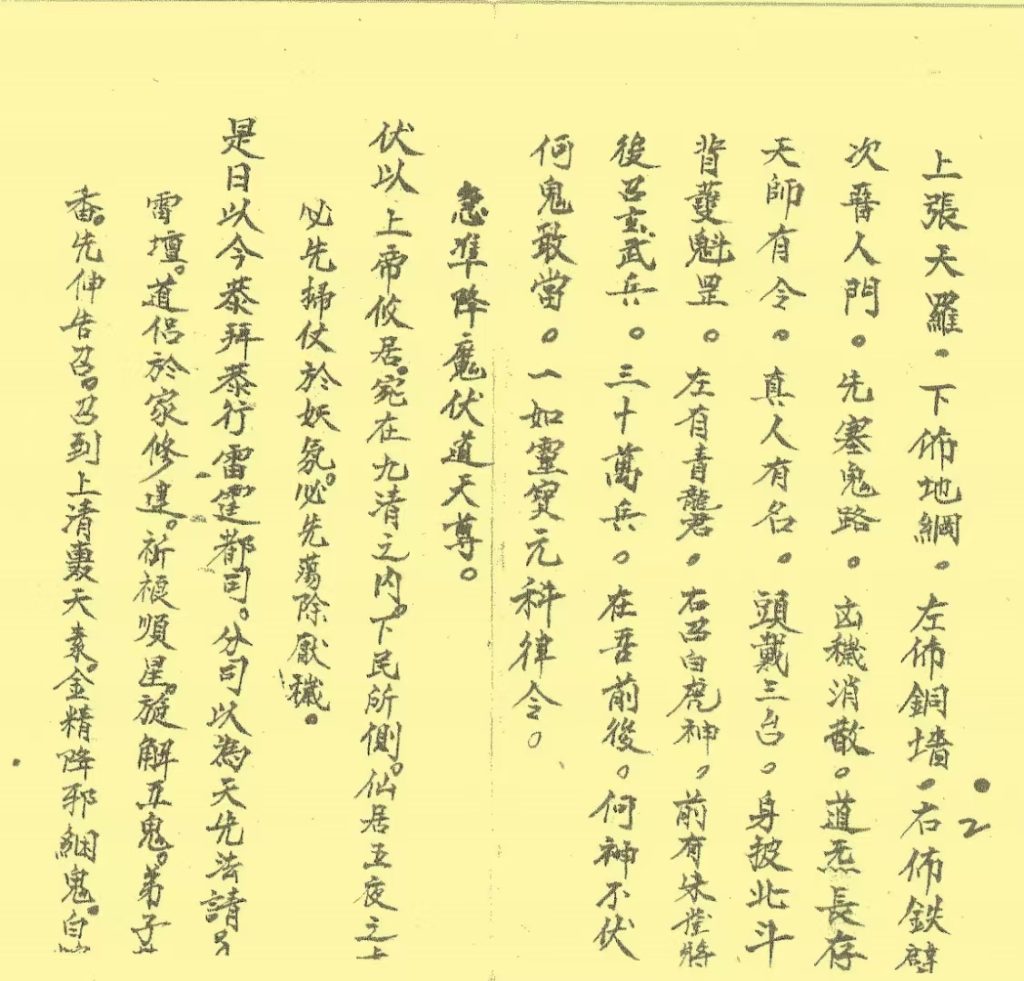 2
上張天羅。下佈地綱。左佈銅墻。右佈鉄壁
次番人門。先塞鬼路。凶穢消散。道炁長存
天師有令。真人有名。頭戴三台。身披北斗
背魁罡。左有青龍君。右召白虎神。前有朱雀將
後召玄武兵。三十萬兵。在吾前後。何神不伏
何鬼敢當。一如靈寳元科律令。
急準降魔伏道天尊。
伏以上帝攸居。宛在九清之内。下民所側。仙居五夜之
必先掃仗於妖氛。必先蕩除厭穢。
是日以今恭拜恭行雷霆都司。分司以為天先法請。
雷壇。道侣於家修建。祈禳順星。旋解五鬼。弟子
番。先伸告召。召到上清天素。金精降邪綑鬼。